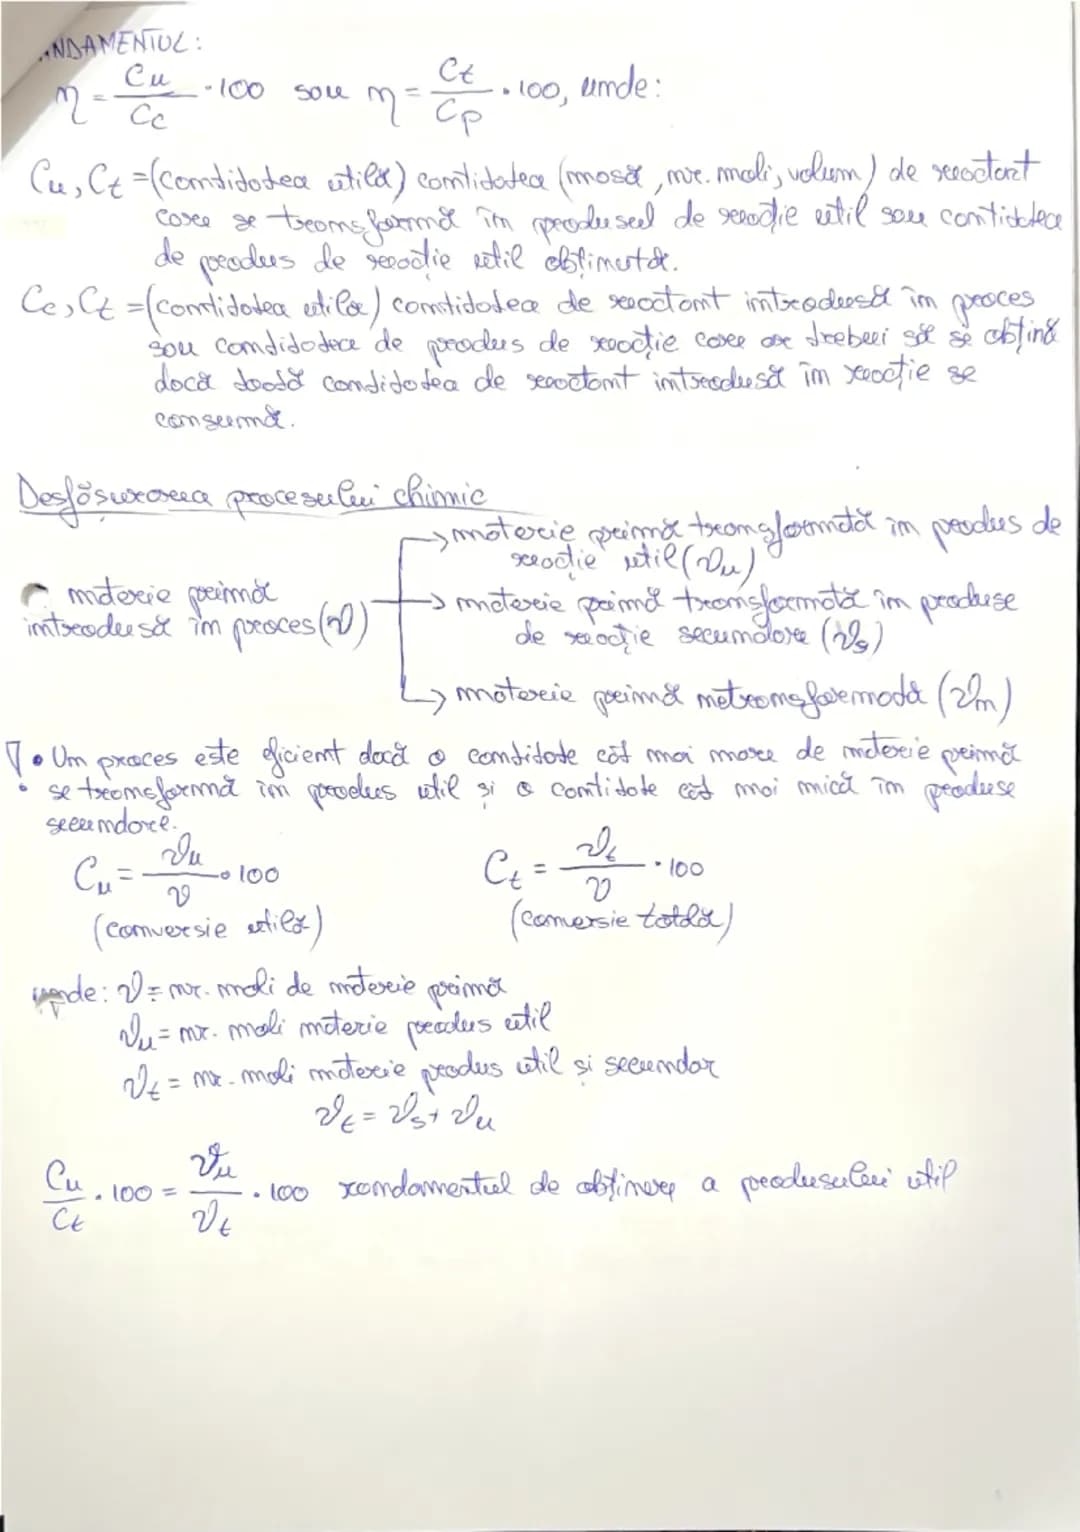 NDAMENTUL:
η = Cu/Cc · 100 sau η = Ct/Cp · 100, unde:
Cu, Ct = (cantitatea utilă) cantitatea (masă, nr. moli, volum) de reactant
care se transformă în produsul de reacție util sau cantitatea
de produs de reacție util obținută.
Cc, Ct = (cantitatea utilă) cantitatea de reactant introdusă în proces
sau cantitatea de produs de reacție care ar trebui să se obțină
dacă toată cantitatea de reactant introdusă în reacție se
consumă.
Desfășurarea procesului chimic
→ materie primă transformată în produs de
reacție util (νu)
materie primă
introdusă în proces (ν)
→ materie primă transformată în produse
de reacție secundare (νs)
→ materie primă netransformată (νn)
! • Un proces este eficient dacă o cantitate cât mai mare de materie primă
se transformă în produs util și o cantitate cât mai mică în produse
secundare.
Cu = νu/ν · 100 Ct = νt/ν · 100
(conversie utilă) (conversie totală)
unde: ν = nr. moli de materie primă
νu = nr. moli materie produs util
νt = nr. moli materie produs util și secundar
νt = νs + νu
Cu/Ct · 100 = νu/νt · 100 randamentul de obținere a produsului util